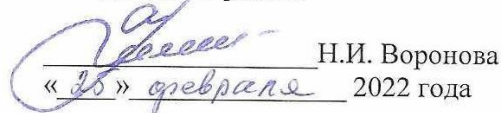 Н.И. Воронова
«25» февраля 2022 года